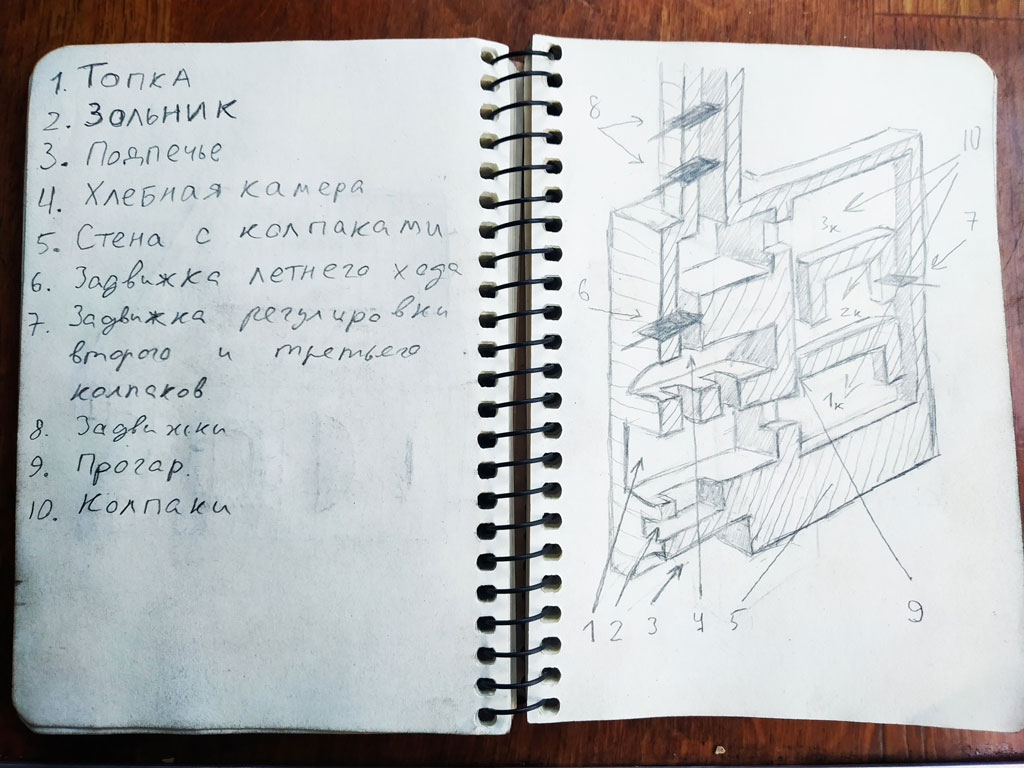 1. Топка
2. Зольник
3. Подпечье
4. Хлебная камера
5. Стена с колпаками
6. Задвижка летнего хода
7. Задвижка регулировки
второго и третьего
колпаков
8. Задвижки
9. Прогар.
10. Колпаки
8
10
7
3к
6
2к
1к
1 2 3 4 5 9